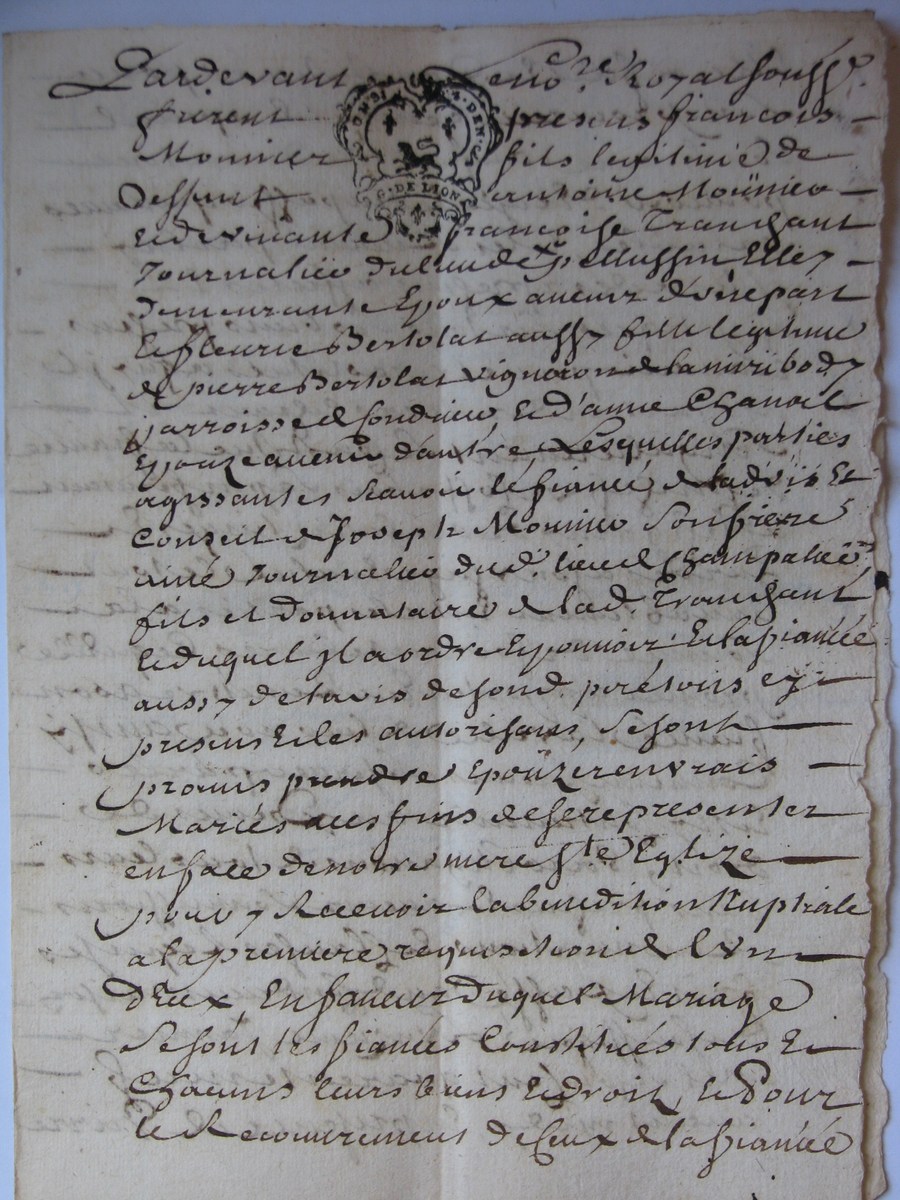 Pardevant Le no.re Royal soussg.
furent presens francois
Mounier fils legitime de
deffunt Antoine Moünier
G. DE LION
Et de vivante francoise Tranchant
Journalier du lieu de pellussin Elle y
demeurante Epoux avenir d'une part
Et fleurie Bertolat aussy fille legitime
de pierre Bertolat vigneron de la miribody
parroisse de fondrieu, Et d'anne Chanal
Epouze avenir d'autre, Lesquelles parties
agissantes Scavoir le fiancé de l'advis Et
Conseil de Joseph Mounier Son frere
ainé Journalier dud. lieu de Champalier
fils et donnataire de lad. Tranchant
Et duquel jl a ordre Et pouvoir Et la fiancée
aussy de l'avis de sond. pere tous cy
presens Et les autorisans, Se sont
promis prendre Epoüzer en vrais
Mariés a ces fins de se representer
en face de notre mere Ste Eglize
pour y Recevoir la benedition Nuptiale
a la premiere requisition de L'un
d'Eux, En faveur duquel Mariage
Se sont les fiancés Constitués tous Et
Chacuns leurs biens Et droit, Et Pour
Le Recouvrement de Ceux de la fiancée